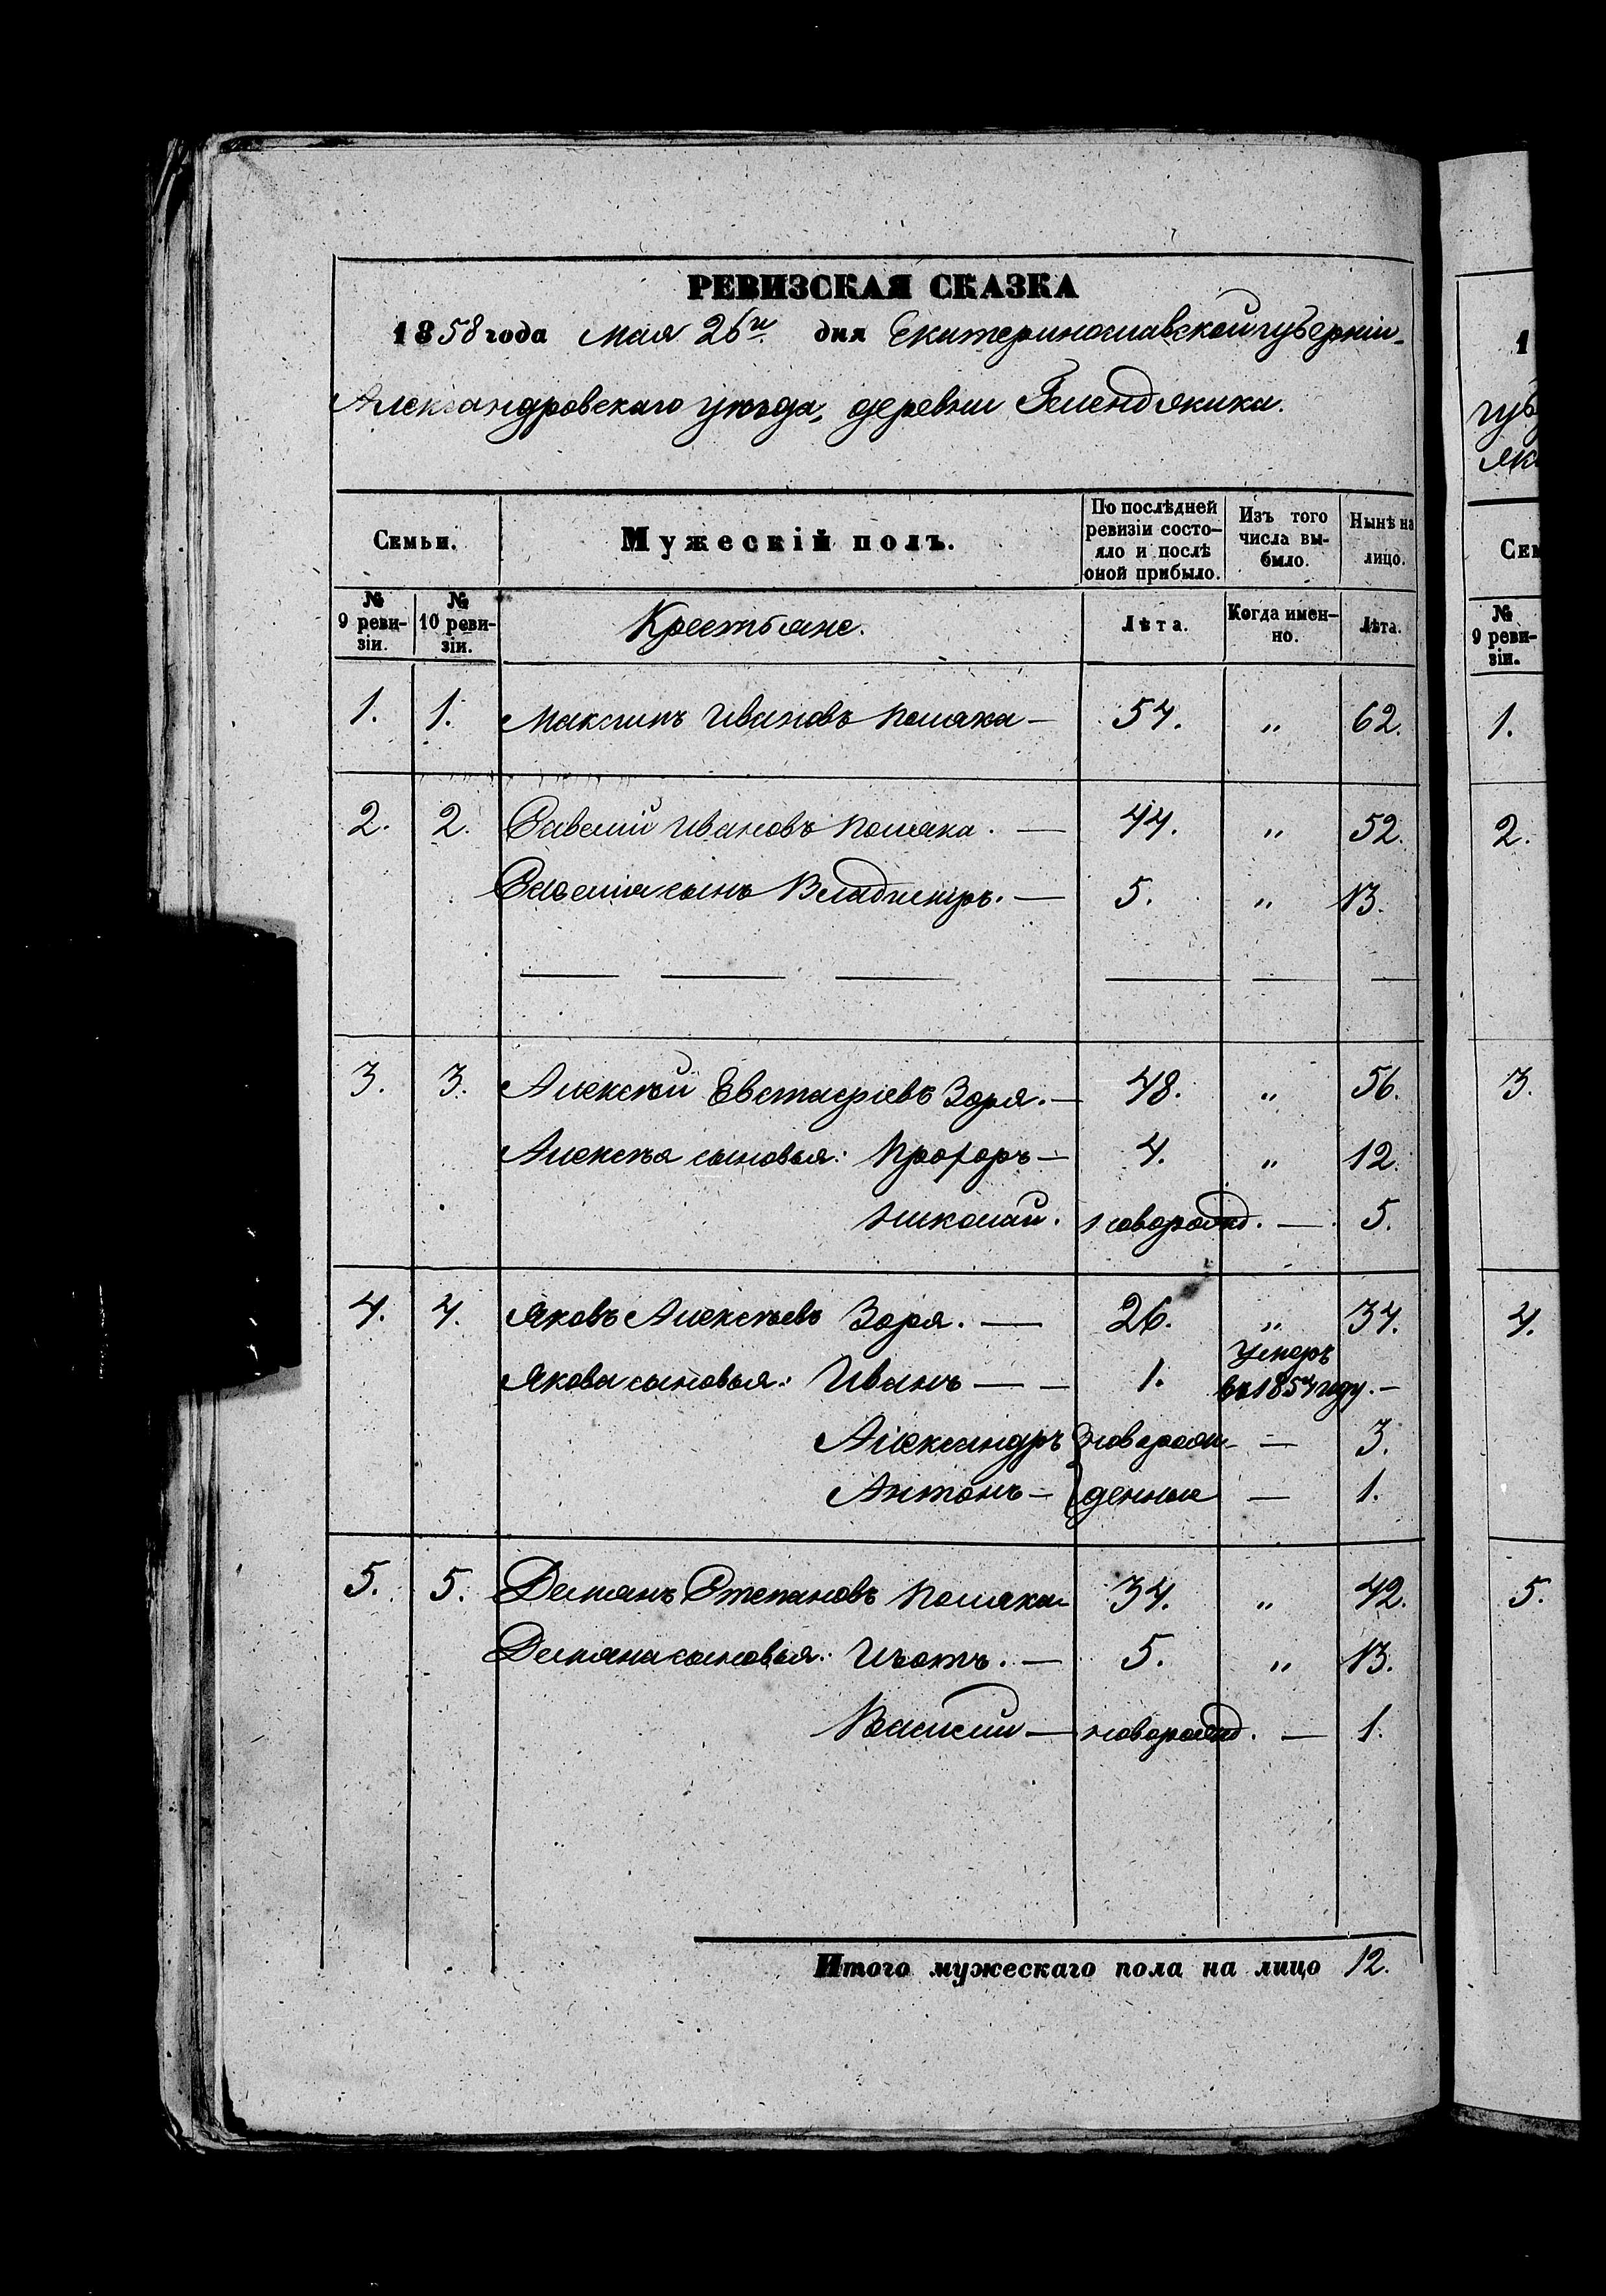 РЕВИЗСКАЯ СКАЗКА
1858 года Мая 26го дня Екатеринославской губерніи
Александровскаго уѣзда, деревни
Семьи. Мужескій полъ. По послѣдней ревизіи состояло и послѣ оной прибыло. Изъ того числа выбыло. Нынѣ на лицо.
№ 9 ревизіи. № 10 ревизіи. Крестьяне. Лѣта. Когда именно. Лѣта.
1. 1. Максимъ Ивановъ Поляка — 54. „ 62.
2. 2. Савелій Ивановъ Поляка. — 44. „ 52.
Савелія сынъ Владиміръ. — 5. „ 13.
3. 3. Алексѣй Евстафіевъ Зоря. — 48. „ 56.
Алексѣя сыновья: Прохоръ — 4. „ 12.
Николай. новорожд. — 5.
4. 4. Яковъ Алексѣевъ Зоря. — 26. „ 34.
Якова сыновья: Иванъ — — 1. Умеръ въ 1854 году. —
Александръ новорож- — 3.
Антонъ — денные — 1.
5. 5. Демянъ Степановъ Поляка 34. „ 42.
Демяна сыновья: — 5. „ 13.
Василій — новорожд. — 1.
Итого мужескаго пола на лицо 12.
1
губ
як
Сем
№ 9 ревизіи.
1.
2.
3.
4.
5.